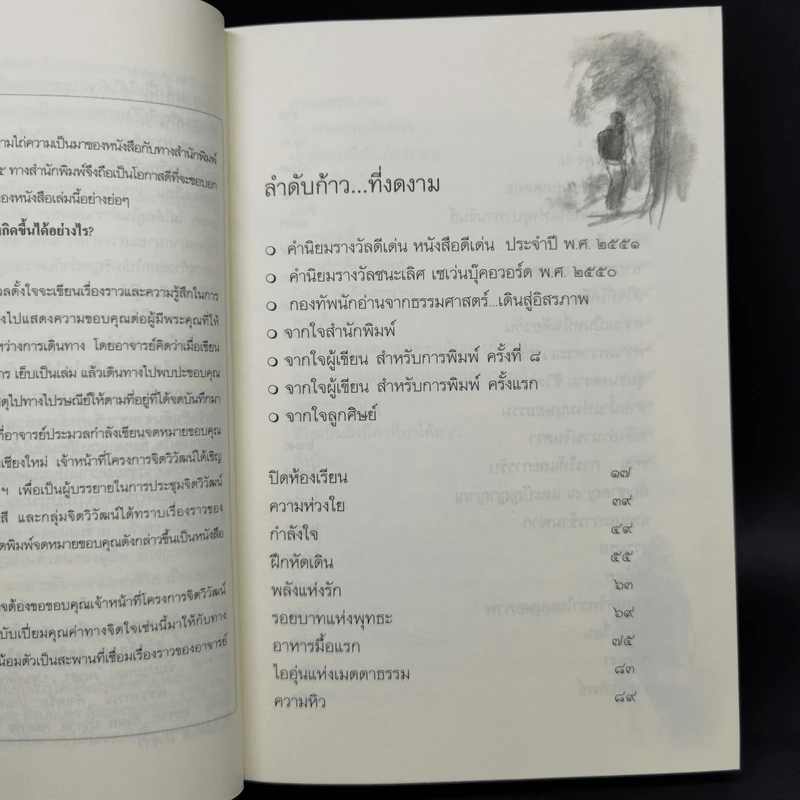 ามไถ่ความเป็นมาของหนังสือกับทางสำนักพิมพ์
๕ ทางสำนักพิมพ์จึงถือเป็นโอกาสดีที่จะขอบอก
องหนังสือเล่มนี้อย่างย่อๆ
กิดขึ้นได้อย่างไร?
วลตั้งใจจะเขียนเรื่องราวและความรู้สึกในการ
งไปแสดงความขอบคุณต่อผู้มีพระคุณที่ให้
หว่างการเดินทาง โดยอาจารย์คิดว่าเมื่อเขียน
การ เย็บเป็นเล่ม แล้วเดินทางไปพบปะขอบคุณ
สดุไปทางไปรษณีย์ให้ตามที่อยู่ที่ได้จดบันทึกมา
ที่อาจารย์ประมวลกำลังเขียนจดหมายขอบคุณ
เชียงใหม่ เจ้าหน้าที่โครงการจิตวิวัฒน์ได้เชิญ
ฯ เพื่อเป็นผู้บรรยายในการประชุมจิตวิวัฒน์
สี และกลุ่มจิตวิวัฒน์ได้ทราบเรื่องราวของ
ดพิมพ์จดหมายขอบคุณดังกล่าวขึ้นเป็นหนังสือ
จต้องขอขอบคุณเจ้าหน้าที่โครงการจิตวิวัฒน์
บับเปี่ยมคุณค่าทางจิตใจเช่นนี้มาให้กับทาง
น้อมตัวเป็นสะพานที่เชื่อมเรื่องราวของอาจารย์
ลำดับก้าว...ที่งดงาม
คำนิยมรางวัลดีเด่น หนังสือดีเด่น ประจำปี พ.ศ. ๒๕๕๑
คำนิยมรางวัลชนะเลิศ เซเว่นบุ๊คอวอร์ด พ.ศ. ๒๕๕๐
กองทัพนักอ่านจากธรรมศาสตร์...เดินสู่อิสรภาพ
จากใจสำนักพิมพ์
จากใจผู้เขียน สำหรับการพิมพ์ ครั้งที่ ๘
จากใจผู้เขียน สำหรับการพิมพ์ ครั้งแรก
จากใจลูกศิษย์
ปิดห้องเรียน ๑๗
ความห่วงใย ๓๙
กำลังใจ ๔๙
ฝึกหัดเดิน ๕๕
พลังแห่งรัก ๖๓
รอยบาทแห่งพุทธะ ๖๙
อาหารมื้อแรก ๗๕
ไออุ่นแห่งเมตตาธรรม ๘๓
ความหิว ๘๙